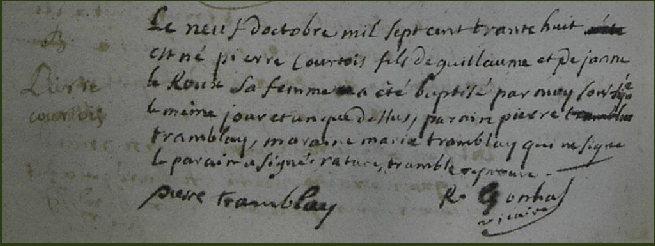 B.
Pierre
courtois
Le neuf doctobre mil sept cent trante huit
est né pierre Courtois fils de guillaume et de janne
le Roux sa femme a été baptisé par moy
le même jour et an que dessus, parain pierre
tramblay, maraine marie tramblay qui ne signe
le parain a signé, rature, tramble
pierre tramblay
vicaire